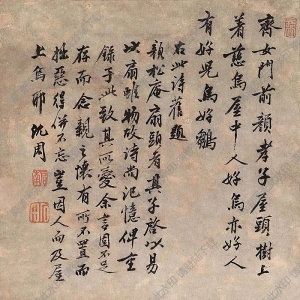 齊女門前顏孝子屋頭樹上
著慈烏屋中人好烏亦好人
有好兒烏好鶵
右此詩舊題
顏松庵扇頭者其子啓以易
此扇雖物故詩尚記憶俾重
錄于此致其所愛余言固不足
存而念親之懷有所不置而
拙惡得併不忘豈因人而及屋
上烏邪沈周